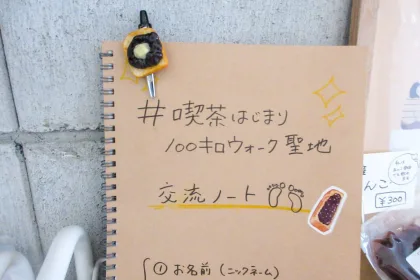 #喫茶はじまり
100キロウォーク聖地
交流ノート
① お名前 (ニックネーム)
んこ
¥300